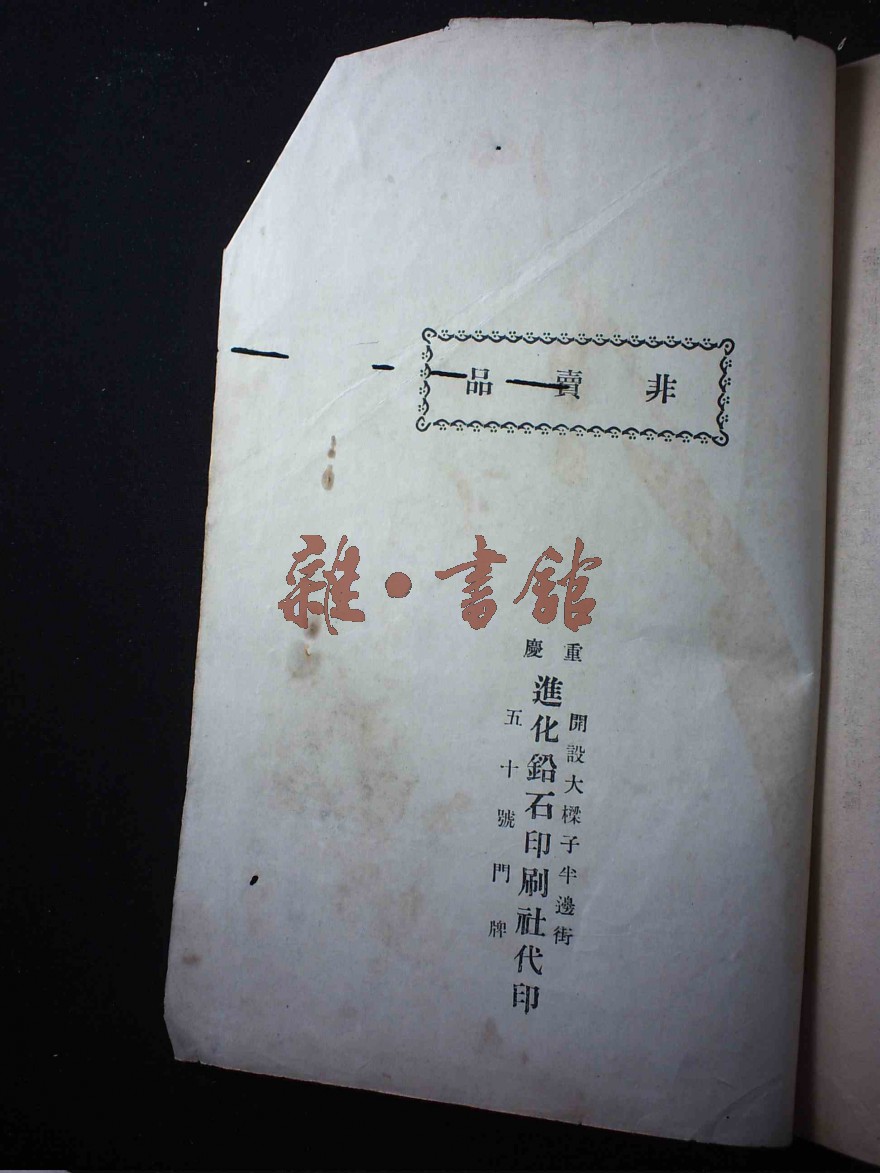 非賣品
雜·書館
重慶
開設大樑子半邊街
進化鉛石印刷社代印
五十號門牌